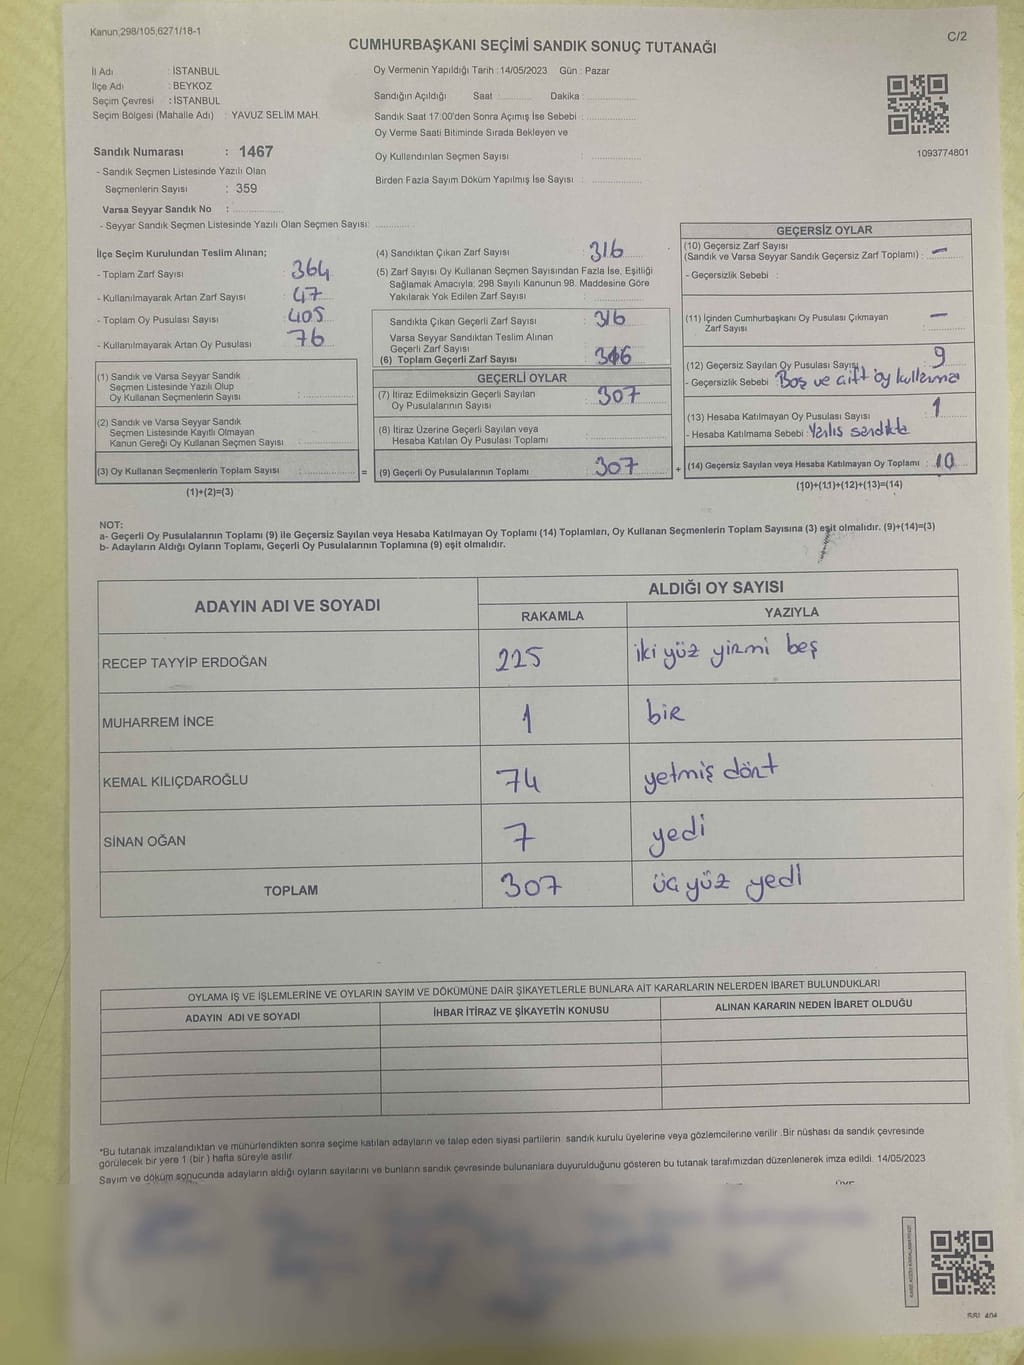 Kanun,298/105,6271/18-1
C/2
CUMHURBAŞKANI SEÇİMİ SANDIK SONUÇ TUTANAĞI
İl Adı : İSTANBUL
İlçe Adı : BEYKOZ
Seçim Çevresi : İSTANBUL
Seçim Bölgesi (Mahalle Adı) : YAVUZ SELİM MAH.
Sandık Numarası : 1467
- Sandık Seçmen Listesinde Yazılı Olan
Seçmenlerin Sayısı : 359
Varsa Seyyar Sandık No :
- Seyyar Sandık Seçmen Listesinde Yazılı Olan Seçmen Sayısı:
Oy Vermenin Yapıldığı Tarih : 14/05/2023 Gün : Pazar
Sandığın Açıldığı Saat : Dakika :
Sandık Saat 17:00'den Sonra Açımış İse Sebebi :
Oy Verme Saati Bitiminde Sırada Bekleyen ve
Oy Kullandırılan Seçmen Sayısı :
Birden Fazla Sayım Döküm Yapılmış İse Sayısı :
1093774801
İlçe Seçim Kurulundan Teslim Alınan;
- Toplam Zarf Sayısı : 364
- Kullanılmayarak Artan Zarf Sayısı : 47
- Toplam Oy Pusulası Sayısı : 405
- Kullanılmayarak Artan Oy Pusulası : 76
(1) Sandık ve Varsa Seyyar Sandık
Seçmen Listesinde Yazılı Olup
Oy Kullanan Seçmenlerin Sayısı :
(2) Sandık ve Varsa Seyyar Sandık
Seçmen Listesinde Kayıtlı Olmayan
Kanun Gereği Oy Kullanan Seçmen Sayısı :
(3) Oy Kullanan Seçmenlerin Toplam Sayısı : =
(1)+(2)=(3)
(4) Sandıktan Çıkan Zarf Sayısı : 316
(5) Zarf Sayısı Oy Kullanan Seçmen Sayısından Fazla İse, Eşitliği
Sağlamak Amacıyla, 298 Sayılı Kanunun 98. Maddesine Göre
Yakılarak Yok Edilen Zarf Sayısı :
Sandıkta Çıkan Geçerli Zarf Sayısı : 316
Varsa Seyyar Sandıktan Teslim Alınan
Geçerli Zarf Sayısı :
(6) Toplam Geçerli Zarf Sayısı : 316
GEÇERLİ OYLAR
(7) İtiraz Edilmeksizin Geçerli Sayılan
Oy Pusulalarının Sayısı : 307
(8) İtiraz Üzerine Geçerli Sayılan veya
Hesaba Katılan Oy Pusulası Toplamı :
(9) Geçerli Oy Pusulalarının Toplamı : 307 +
GEÇERSİZ OYLAR
(10) Geçersiz Zarf Sayısı
(Sandık ve Varsa Seyyar Sandık Geçersiz Zarf Toplamı) : –
- Geçersizlik Sebebi :
(11) İçinden Cumhurbaşkanı Oy Pusulası Çıkmayan
Zarf Sayısı : –
(12) Geçersiz Sayılan Oy Pusulası Sayısı : 9
- Geçersizlik Sebebi : Boş ve çift oy kullanma
(13) Hesaba Katılmayan Oy Pusulası Sayısı : 1
- Hesaba Katılmama Sebebi : Yanlıs sandıkta
(14) Geçersiz Sayılan veya Hesaba Katılmayan Oy Toplamı : 10
(10)+(11)+(12)+(13)=(14)
NOT:
a- Geçerli Oy Pusulalarının Toplamı (9) ile Geçersiz Sayılan veya Hesaba Katılmayan Oy Toplamı (14) Toplamları, Oy Kullanan Seçmenlerin Toplam Sayısına (3) eşit olmalıdır. (9)+(14)=(3)
b- Adayların Aldığı Oyların Toplamı, Geçerli Oy Pusulalarının Toplamına (9) eşit olmalıdır.
ADAYIN ADI VE SOYADI
ALDIĞI OY SAYISI
RAKAMLA YAZIYLA
RECEP TAYYİP ERDOĞAN 225 iki yüz yirmi beş
MUHARREM İNCE 1 bir
KEMAL KILIÇDAROĞLU 74 yetmiş dört
SİNAN OĞAN 7 yedi
TOPLAM 307 üç yüz yedi
OYLAMA İŞ VE İŞLEMLERİNE VE OYLARIN SAYIM VE DÖKÜMÜNE DAİR ŞİKAYETLERLE BUNLARA AİT KARARLARIN NELERDEN İBARET BULUNDUKLARI
ADAYIN ADI VE SOYADI İHBAR İTİRAZ VE ŞİKAYETİN KONUSU ALINAN KARARIN NEDEN İBARET OLDUĞU
*Bu tutanak imzalandıktan ve mühürlendikten sonra seçime katılan adayların ve talep eden siyasi partilerin sandık kurulu üyelerine veya gözlemcilerine verilir .Bir nüshası da sandık çevresinde
görülecek bir yere 1 (bir ) hafta süreyle asılır.
Sayım ve döküm sonucunda adayların aldığı oyların sayılarını ve bunların sandık çevresinde bulunanlara duyurulduğunu gösteren bu tutanak tarafımızdan düzenlenerek imza edildi. 14/05/2023